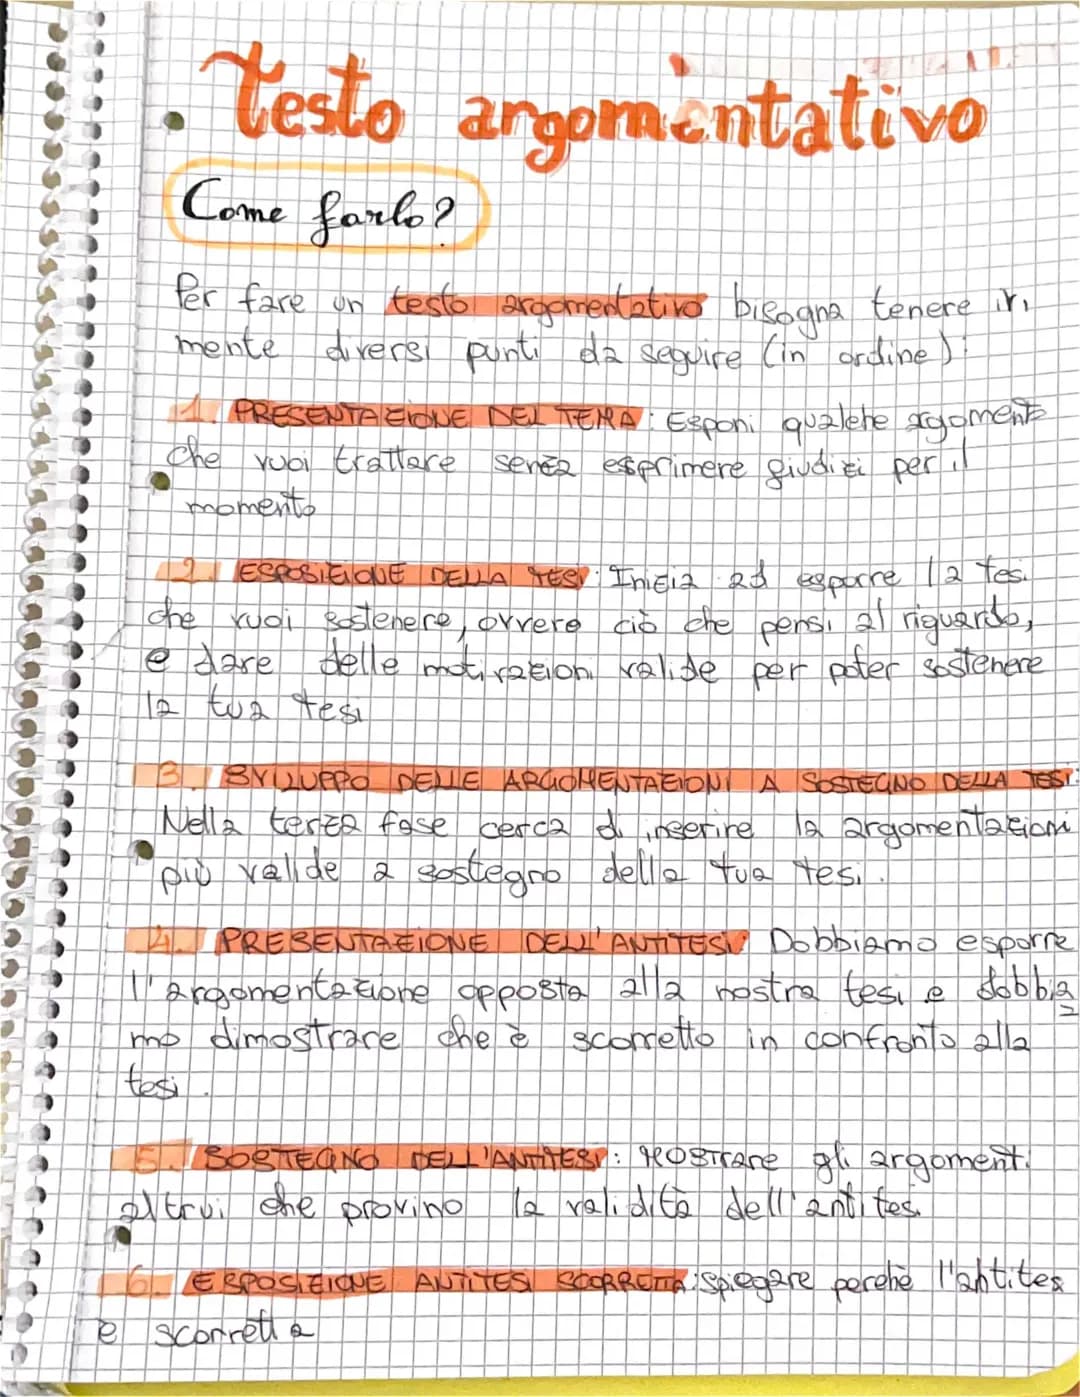 testo argomentativo
Come farlo?
Per fare un testo argomentativo bisogna tenere in
mente diversi punti da seguire (in ordine):
1. PRESENTAZIONE DEL TEMA: Esponi qualche argomento
che vuoi trattare senza esprimere giudizi per il
momento
2. ESPOSIZIONE DELLA TESI: Inizia ad esporre la tesi
che vuoi sostenere, ovvero ciò che pensi al riguardo,
e dare delle motivazioni valide per poter sostenere
la tua tesi
3. SVILUPPO DELLE ARGOMENTAZIONI A SOSTEGNO DELLA TESI:
Nella terza fase cerca di inserire la argomentazioni
più valide a sostegno della tua tesi.
4. PRESENTAZIONE DELL'ANTITESI: Dobbiamo esporre
l'argomentazione opposta alla nostra tesi e dobbia
mo dimostrare che è scorretto in confronto alla
tesi.
5. SOSTEGNO DELL'ANTITESI: MOSTRARE gli argomenti
altrui che provino la validità dell'antitesi
6. ESPOSIZIONE ANTITESI SCORRETTA: Spiegare perchè l'antitesi
è scorretta